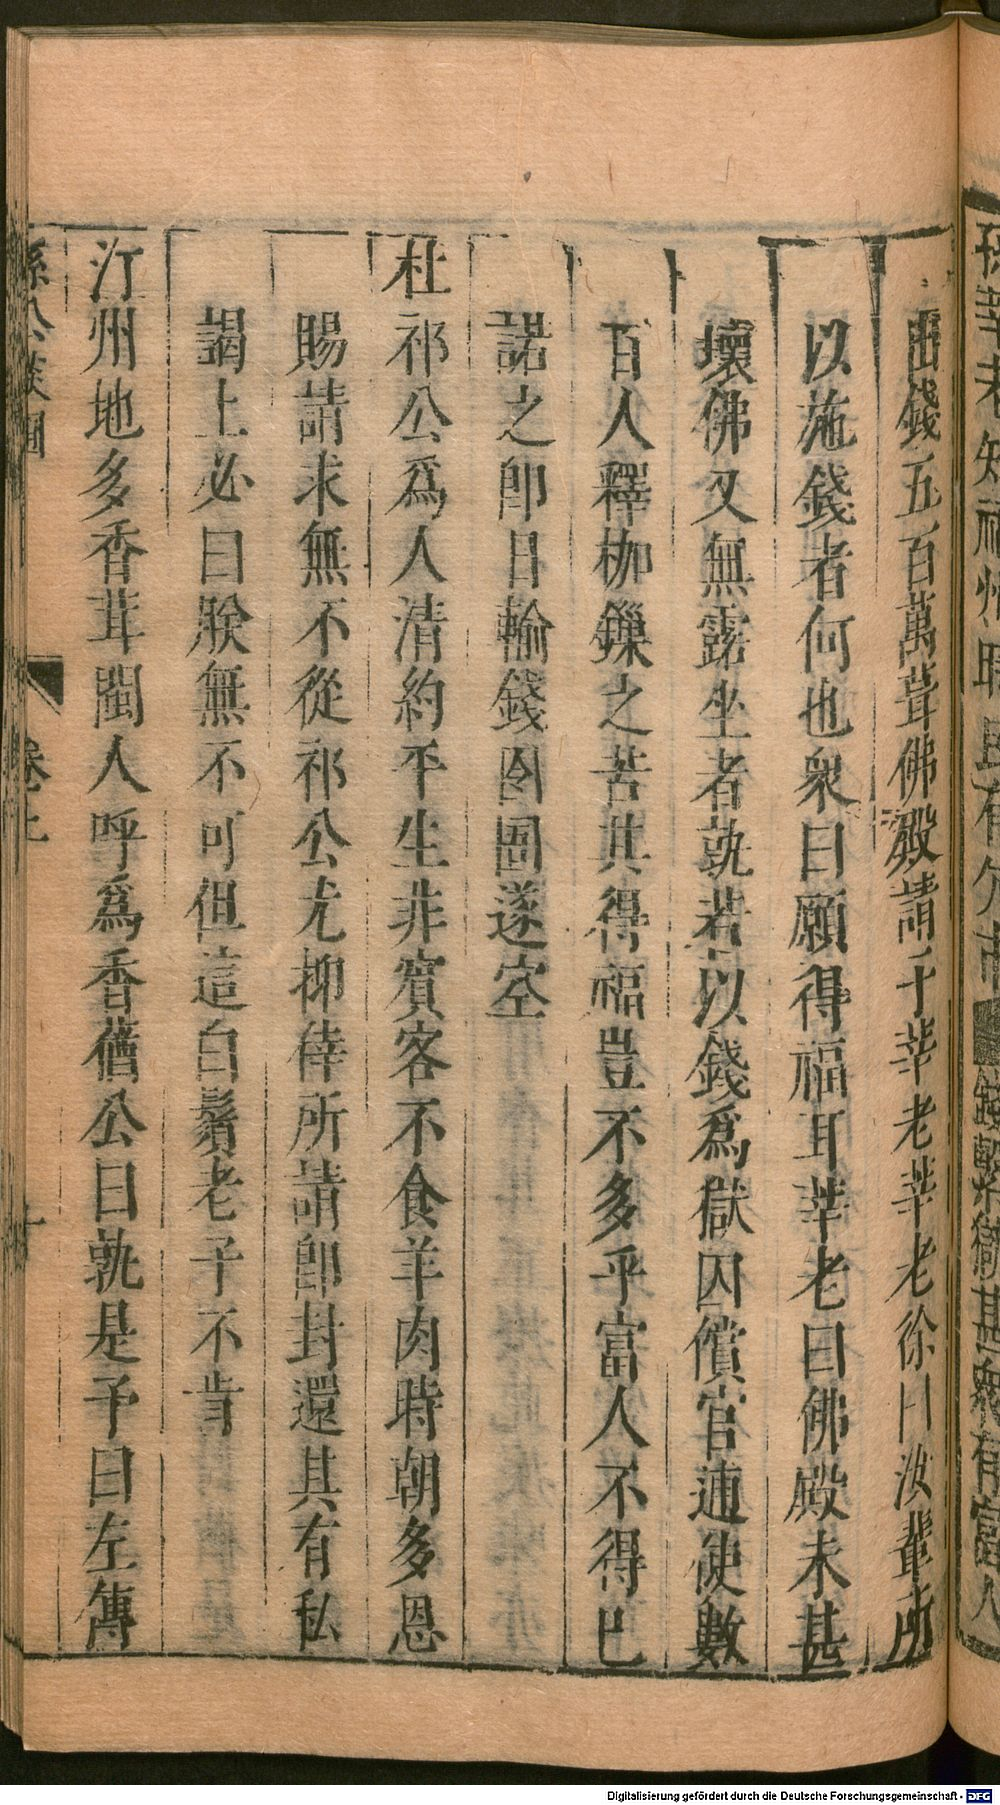 出錢五百萬葺佛殿請于莘老莘老徐曰汝輩所
以施錢者何也衆曰願得福耳莘老曰佛殿未甚
壞佛又無露坐者孰若以錢爲獄囚償官逋使數
百人釋枷鏁之苦其得福豈不多乎富人不得已
諾之即日輸錢囹圄遂空
杜祁公爲人清約平生非賓客不食羊肉時朝多恩
賜請求無不從祁公尤抑倖所請即封還其有私
謁上必曰朕無不可但這白鬚老子不肯
汀州地多香茸閩人呼爲香𦶜公曰孰是予曰左傳
孫公談圃
卷上
十
Digitalisierung gefördert durch die Deutsche Forschungsgemeinschaft - DFG